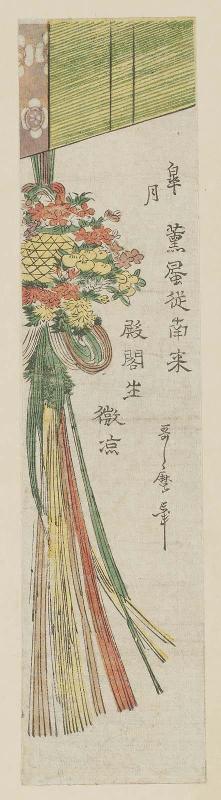 皐月
薫風従南来
殿閣生微凉
哥麿筆